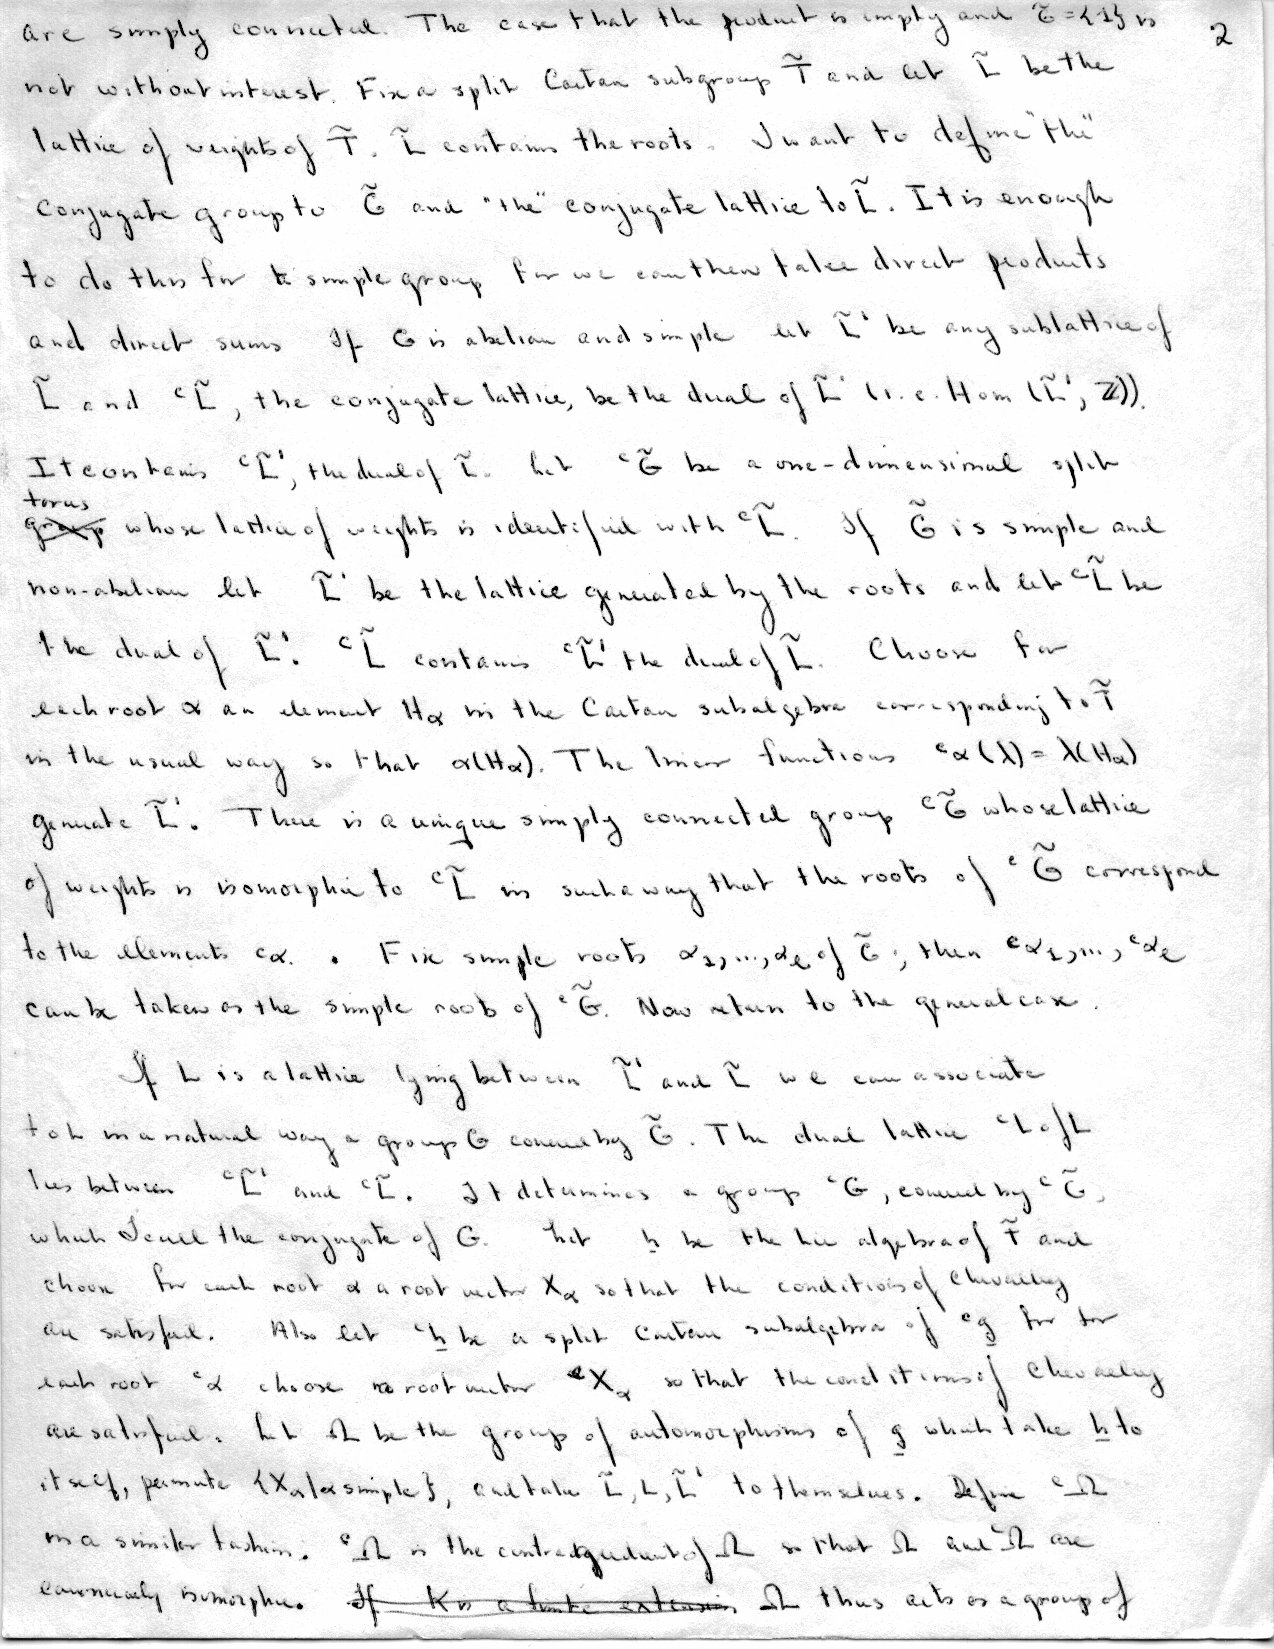 2
are simply connected. The case that the product is empty and G̃ = {1} is
not without interest. Fix a split Cartan subgroup T̃ and let L̃ be the
lattice of weights of T̃. L̃ contains the roots. I want to define "the"
conjugate group to G̃ and "the" conjugate lattice to L̃. It is enough
to do this for a simple group for we can then take direct products
and direct sums If G is abelian and simple let L̃' be any sublattice of
L̃ and ᶜL̃, the conjugate lattice, be the dual of L̃' (i.e. Hom (L̃', ℤ)).
It contains ᶜL̃', the dual of L̃. Let ᶜG̃ be a one-dimensional split
torus
group whose lattice of weights is identified with ᶜL̃. If G̃ is simple and
non-abelian let L̃' be the lattice generated by the roots and let ᶜL̃ be
the dual of L̃'. ᶜL̃ contains ᶜL̃' the dual of L̃. Choose for
each root α an element Hα in the Cartan subalgebra corresponding to T̃
in the usual way so that α(Hα). The linear functions ᶜα(λ) = λ(Hα)
generate L̃'. There is a unique simply connected group ᶜG̃ whose lattice
of weights is isomorphic to ᶜL̃ in such a way that the roots of ᶜG̃ correspond
to the elements ᶜα. . Fix simple roots α₁,...,αℓ of G̃; then ᶜα₁,...,ᶜαℓ
can be taken as the simple roots of ᶜG̃. Now return to the general case.
If L is a lattice lying between L̃' and L̃ we can associate
to L in a natural way a group G covered by G̃. The dual lattice ᶜL of L
lies between ᶜL̃' and ᶜL̃. It determines a group ᶜG, covered by ᶜG̃,
which I call the conjugate of G. Let h be the Lie algebra of T̃ and
choose for each root α a root vector Xα so that the conditions of Chevalley
are satisfied. Also let ᶜh be a split Cartan subalgebra of ᶜg for for
each root ᶜα choose a root vector ᶜXα so that the conditions of Chevalley
are satisfied. Let Ω be the group of automorphisms of g which take h to
itself, permute {Xα|α simple}, and take L̃, L, L̃' to themselves. Define ᶜΩ
in a similar fashion. ᶜΩ is the contragredient of Ω so that Ω and ᶜΩ are
canonically isomorphic. If K is a finite extension, Ω thus acts as a group of